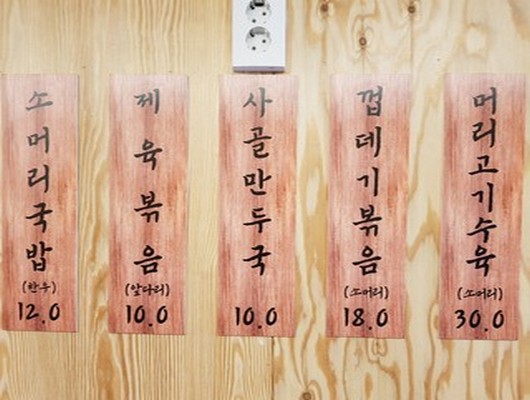 소머리국밥
(한우)
12.0
제육볶음
(앞다리)
10.0
사골만두국
10.0
껍데기볶음
(소머리)
18.0
머리고기수육
(소머리)
30.0